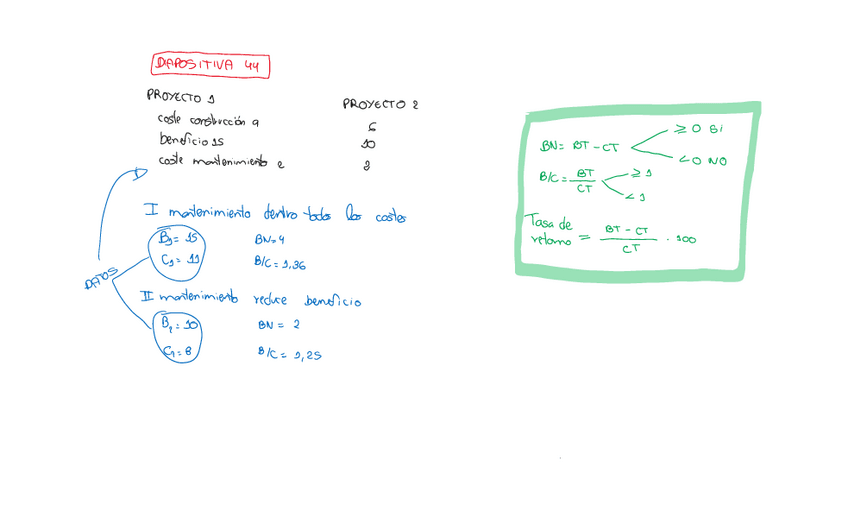 DIAPOSITIVA 44
PROYECTO 1
PROYECTO 2
coste construcción 9
6
beneficio 15
10
coste mantenimiento 2
2
I mantenimiento dentro todos los costes
B1 = 15
BN = 4
C1 = 11
B/C = 1,36
DATOS
II mantenimiento reduce beneficio
B2 = 10
BN = 2
C2 = 8
B/C = 1,25
BN = BT - CT
≥ 0 SI
< 0 NO
B/C = BT / CT
≥ 1
< 1
Tasa de retorno = BT - CT / CT · 100